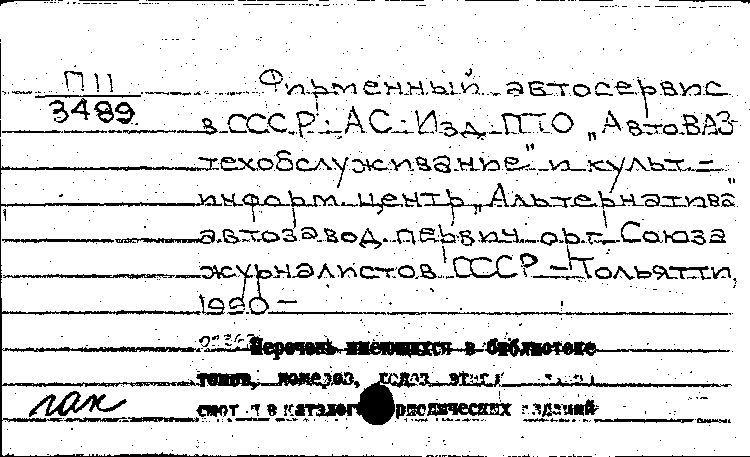 П11
3489
Фирменный автосервис
в СССР: АС: Изд. ПТО „АвтоВАЗ
техобслуживание" и культ.-
информ. центр „Альтернатива"
автозавод. первич. орг. Союза
журналистов СССР. – Тольятти,
1990 –
Перечень имеющихся в библиотеке
томов, номеров, годов
в каталоге изданий